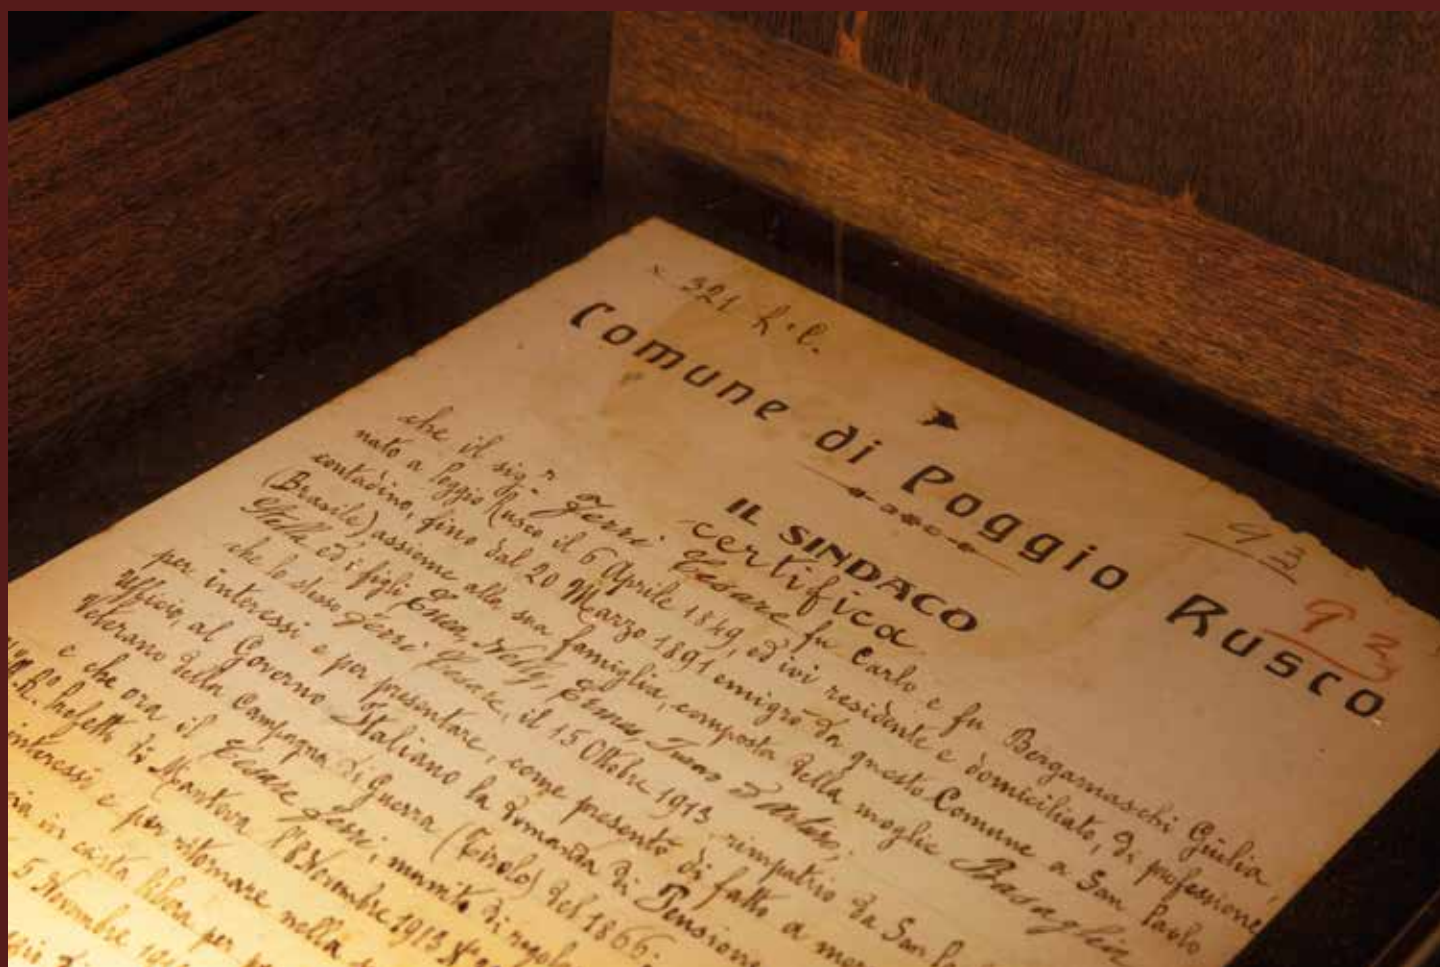 321
Comune di Poggio Rusco
93
93
IL SINDACO
certifica
che il sig.r Ferri Cesare fu Carlo e fu Bergamaschi Giulia,
nato a Poggio Rusco il 6 Aprile 1849, ed ivi residente e domiciliato, di professione
contadino, fino dal 20 Marzo 1891 emigrò da questo Comune a San Paolo
(Brasile) assieme alla sua famiglia, composta della moglie Basaglia
Stella ed i figli Enea, Nelly, Ermes
che lo stesso Ferri Cesare, il 15 Ottobre 1913 rimpatriò da San
per interessi e per presentare, come presentò di fatto a
Ufficio, al Governo Italiano la domanda di Pensione
Veterano della Campagna di Guerra (Tirolo) del 1866.
e che ora il Cesare Ferri, munito di
Prefetto di Mantova l'8 Novembre 1913
interessi e per ritornare nella
in casta libera per
5 Novembre